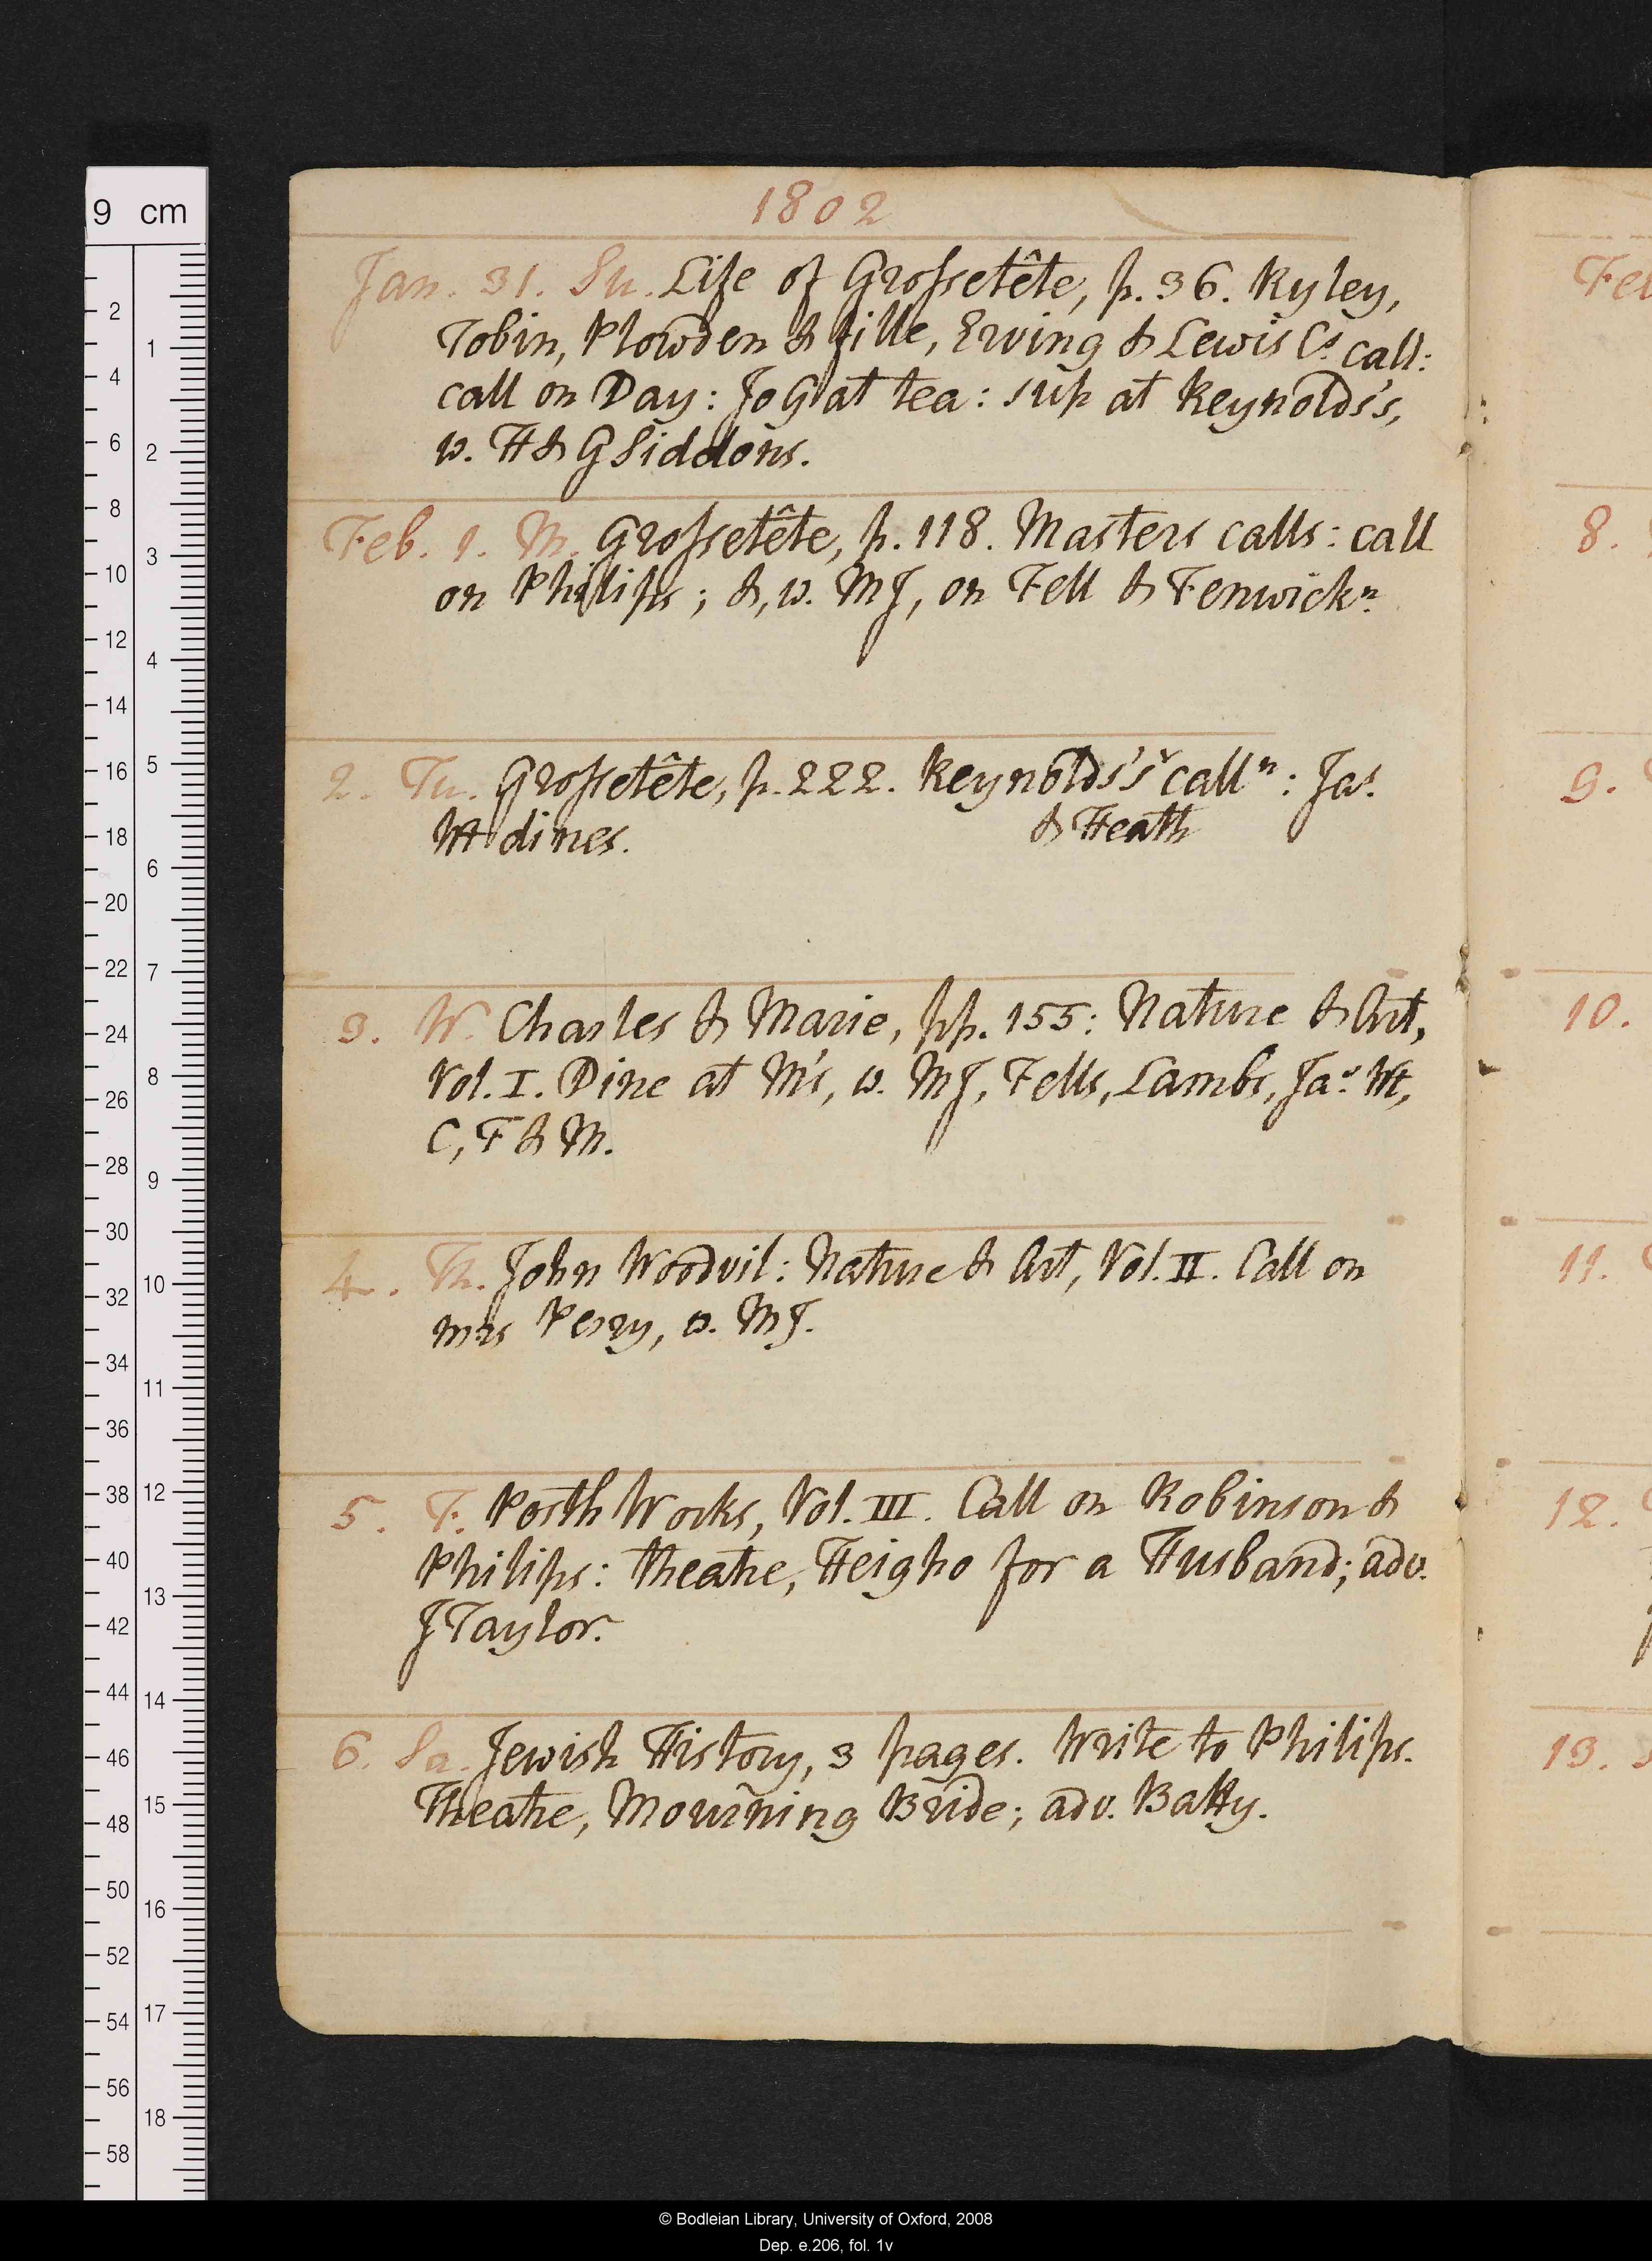 1802
Jan. 31. Su. Life of Grossetête, p. 36. Kyley,
Tobin, Plowden & fille, Erving & Lewis Cs call:
call on Day: Jo G at tea: sup at Reynolds's,
w. H & G Siddons.
Feb. 1. M. Grossetête, p. 118. Masters calls: call
on Philips; &, w. MJ, on Fell & Fenwickn.
2. Tu. Grossetête, p. 222. Reynolds's calln: Jas.
Wt dines. & Heath
3. W. Charles & Marie, pp. 155: Nature & Art,
Vol. I. Dine at M's, w. MJ, Fells, Lambs, Jas. Wt,
C, F & M.
4. Th. John Woodvil: Nature & Art, Vol. II. Call on
mrs Perry, w. MJ.
5. F. Posth Works, Vol. III. Call on Robinson &
Philips: theatre, Heigho for a Husband; adv.
J Taylor.
6. Sa. Jewish History, 3 pages. Write to Philips.
Theatre, Mourning Bride; adv. Batty.
Fe
8.
9.
10.
11.
12.
13.
9 cm
2 4 6 8 10 12 14 16 18 20 22 24 26 28 30 32 34 36 38 40 42 44 46 48 50 52 54 56 58
1 2 3 4 5 6 7 8 9 10 11 12 13 14 15 16 17 18
© Bodleian Library, University of Oxford, 2008
Dep. e.206, fol. 1v